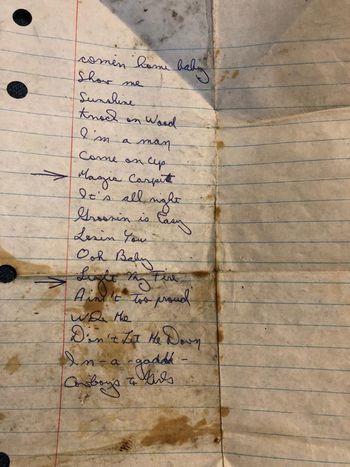 comin home baby
Show me
Sunshine
Knock on Wood
I'm a man
Come on Up
Magic Carpet
It's all right
Groovin is Easy
Losin You
Ooh Baby
Light My Fire
Ain't too proud
Who Me
Don't Let Me Down
In-a-gadda-
Cowboys to Girls